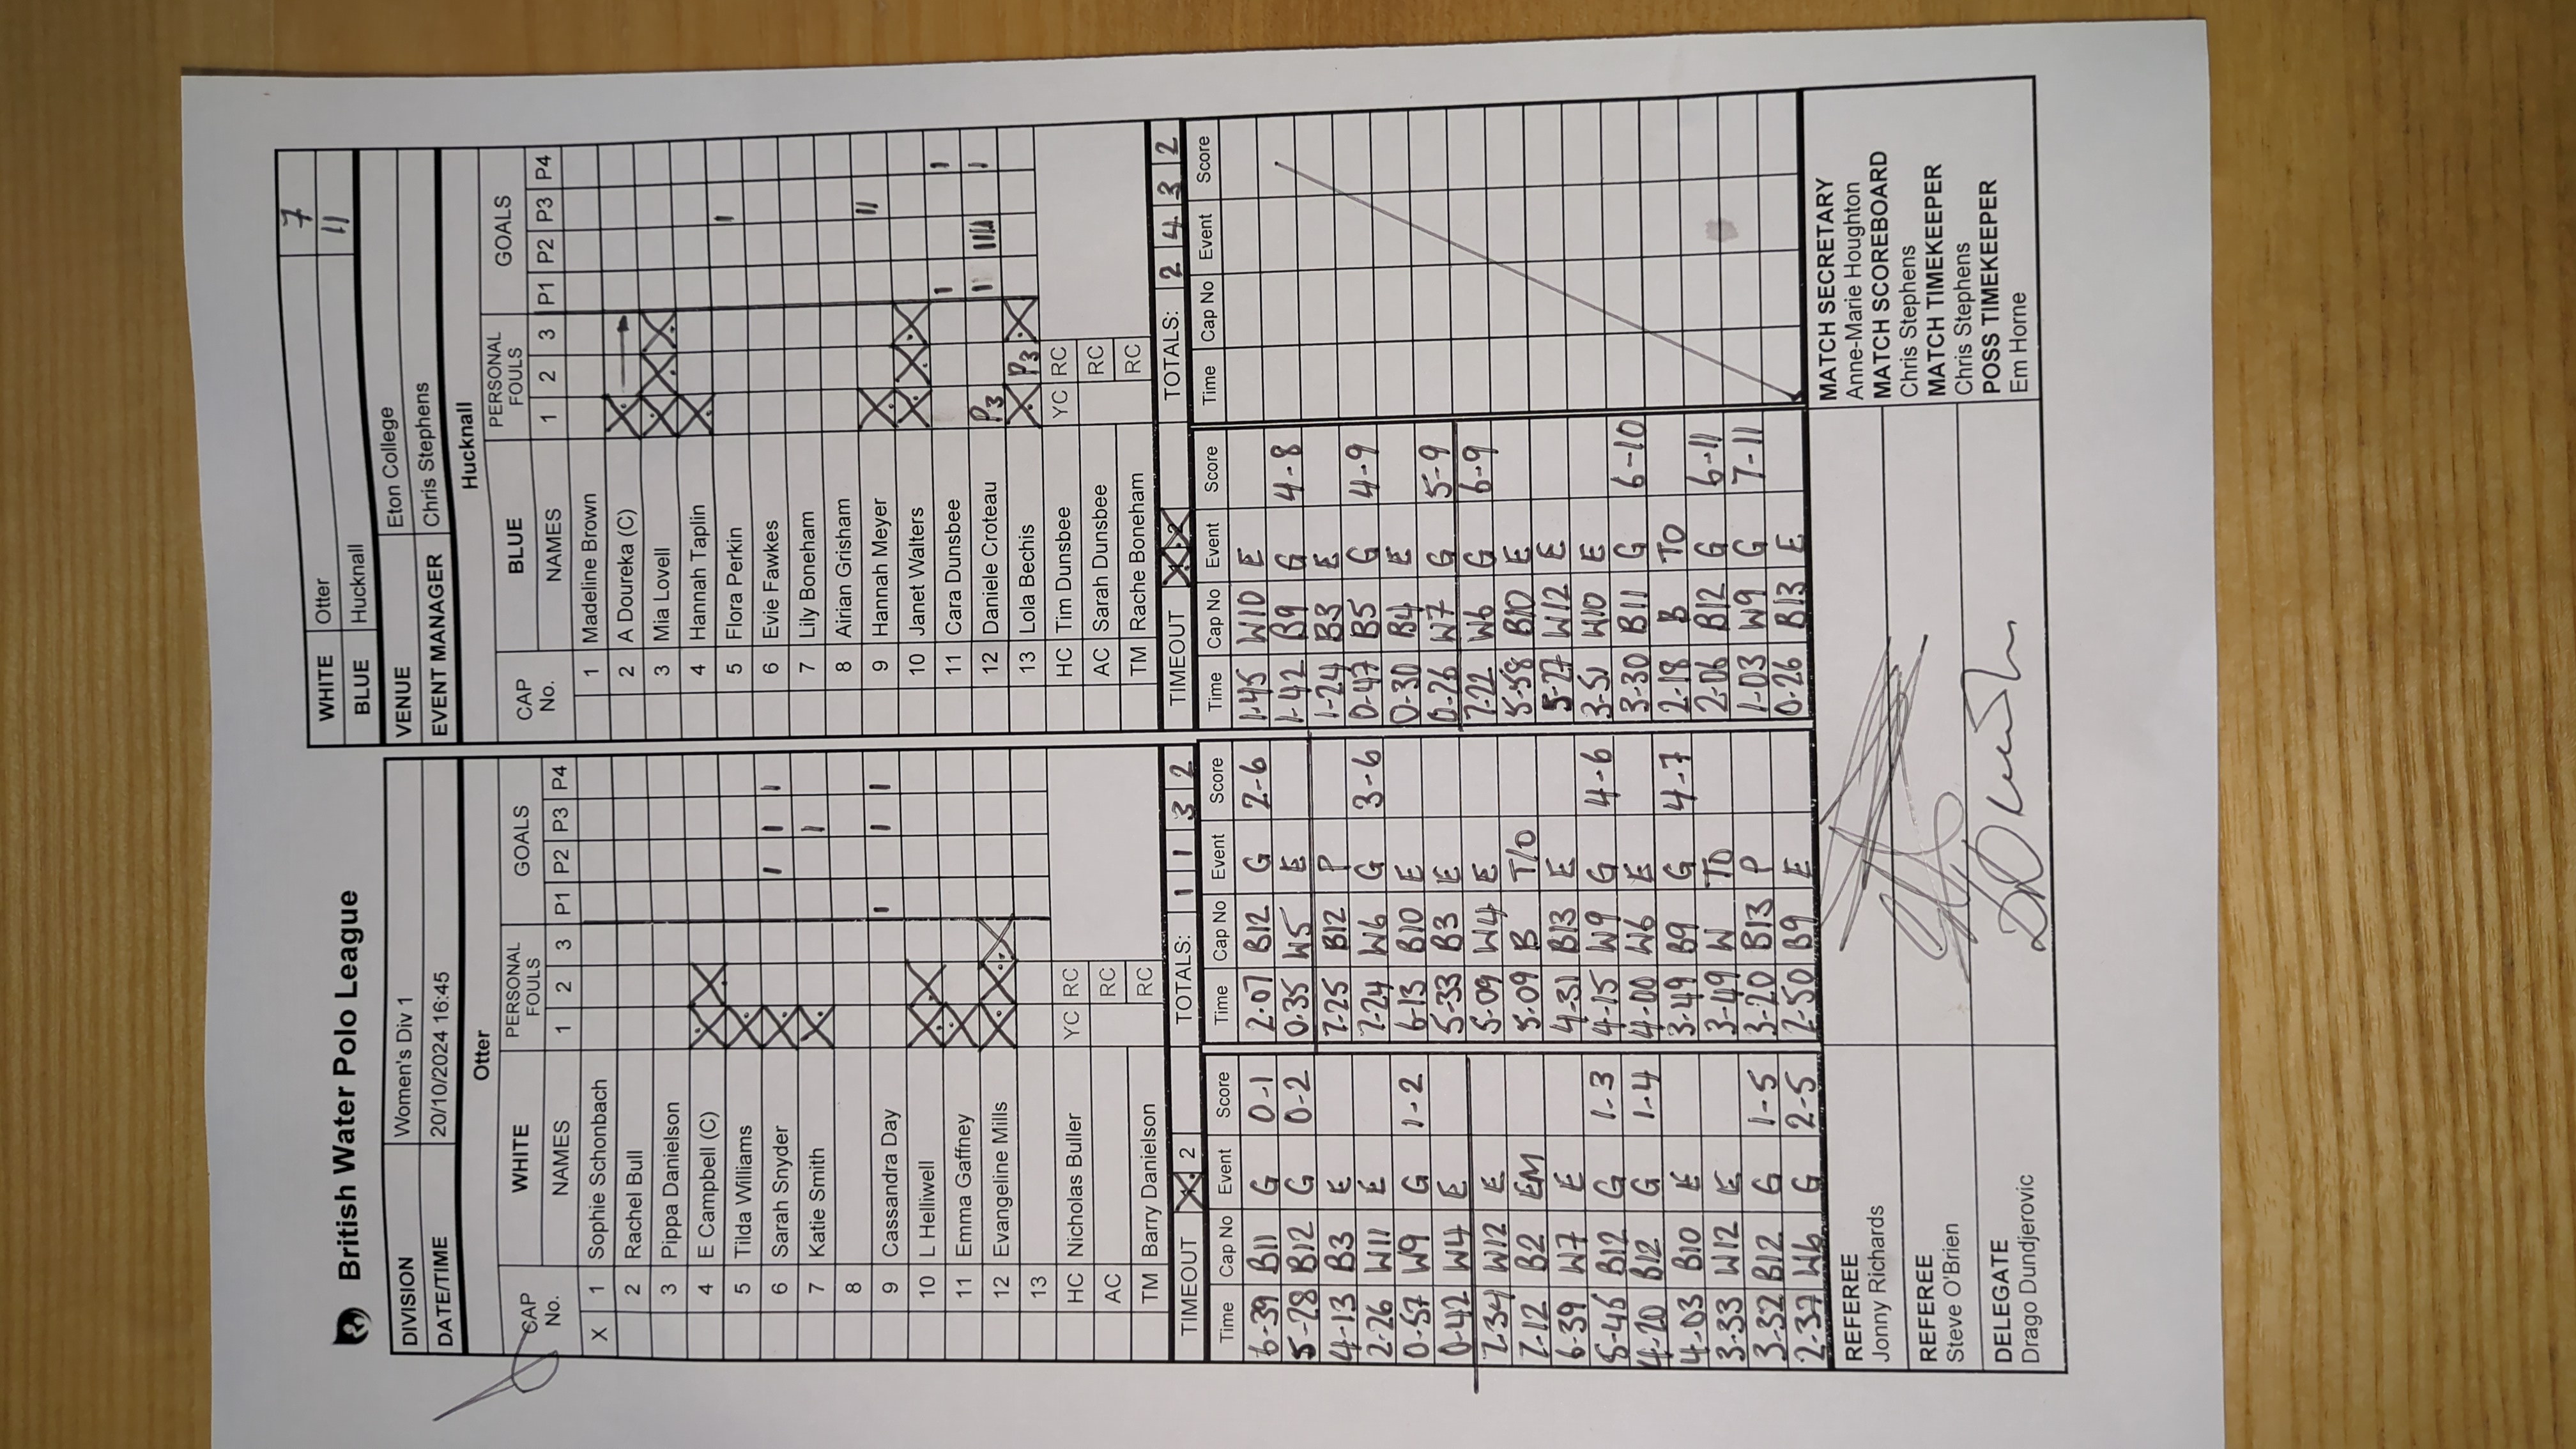 British Water Polo League
WHITE Otter 7
BLUE Hucknall 11
DIVISION Women's Div 1
DATE/TIME 20/10/2024 16:45
VENUE Eton College
EVENT MANAGER Chris Stephens
Otter
CAP No. WHITE NAMES PERSONAL FOULS 1 2 3 GOALS P1 P2 P3 P4
X 1 Sophie Schonbach
2 Rachel Bull
3 Pippa Danielson
4 E Campbell (C)
5 Tilda Williams
6 Sarah Snyder I I I
7 Katie Smith I
8
9 Cassandra Day I I I
10 L Helliwell
11 Emma Gaffney
12 Evangeline Mills
13
HC Nicholas Buller YC RC
AC RC
TM Barry Danielson RC
TIMEOUT 2 TOTALS: 1 1 3 2
Hucknall
CAP No. BLUE NAMES PERSONAL FOULS 1 2 3 GOALS P1 P2 P3 P4
1 Madeline Brown
2 A Doureka (C)
3 Mia Lovell
4 Hannah Taplin
5 Flora Perkin I
6 Evie Fawkes
7 Lily Boneham
8 Airian Grisham
9 Hannah Meyer II
10 Janet Walters
11 Cara Dunsbee I I
12 Daniele Croteau P3 I IIII I
13 Lola Bechis P3
HC Tim Dunsbee YC RC
AC Sarah Dunsbee RC
TM Rache Boneham RC
TIMEOUT TOTALS: 2 4 3 2
Time Cap No Event Score
6-39 B11 G 0-1
5-28 B12 G 0-2
4-13 B3 E
2-26 W11 E
0-57 W9 G 1-2
0-42 W4 E
7-34 W12 E
7-12 B2 EM
6-39 W7 E
5-46 B12 G 1-3
4-20 B12 G 1-4
4-03 B10 E
3-33 W12 E
3-32 B12 G 1-5
2-37 W6 G 2-5
Time Cap No Event Score
2-07 B12 G 2-6
0-35 W5 E
7-25 B12 P
7-24 W6 G 3-6
6-13 B10 E
5-33 B3 E
5-09 W4 E
5-09 B T/O
4-31 B13 E
4-15 W9 G 4-6
4-00 W6 E
3-49 B9 G 4-7
3-49 W TO
3-20 B13 P
2-50 B9 E
Time Cap No Event Score
1-45 W10 E
1-42 B9 G 4-8
1-24 B3 E
0-47 B5 G 4-9
0-30 B4 E
0-26 W7 G 5-9
7-22 W6 G 6-9
5-58 B10 E
5-27 W12 E
3-51 W10 E
3-30 B11 G 6-10
2-18 B TO
2-06 B12 G 6-11
1-03 W9 G 7-11
0-26 B13 E
Time Cap No Event Score
REFEREE
Jonny Richards
REFEREE
Steve O'Brien
DELEGATE
Drago Dundjerovic
MATCH SECRETARY
Anne-Marie Houghton
MATCH SCOREBOARD
Chris Stephens
MATCH TIMEKEEPER
Chris Stephens
POSS TIMEKEEPER
Em Horne